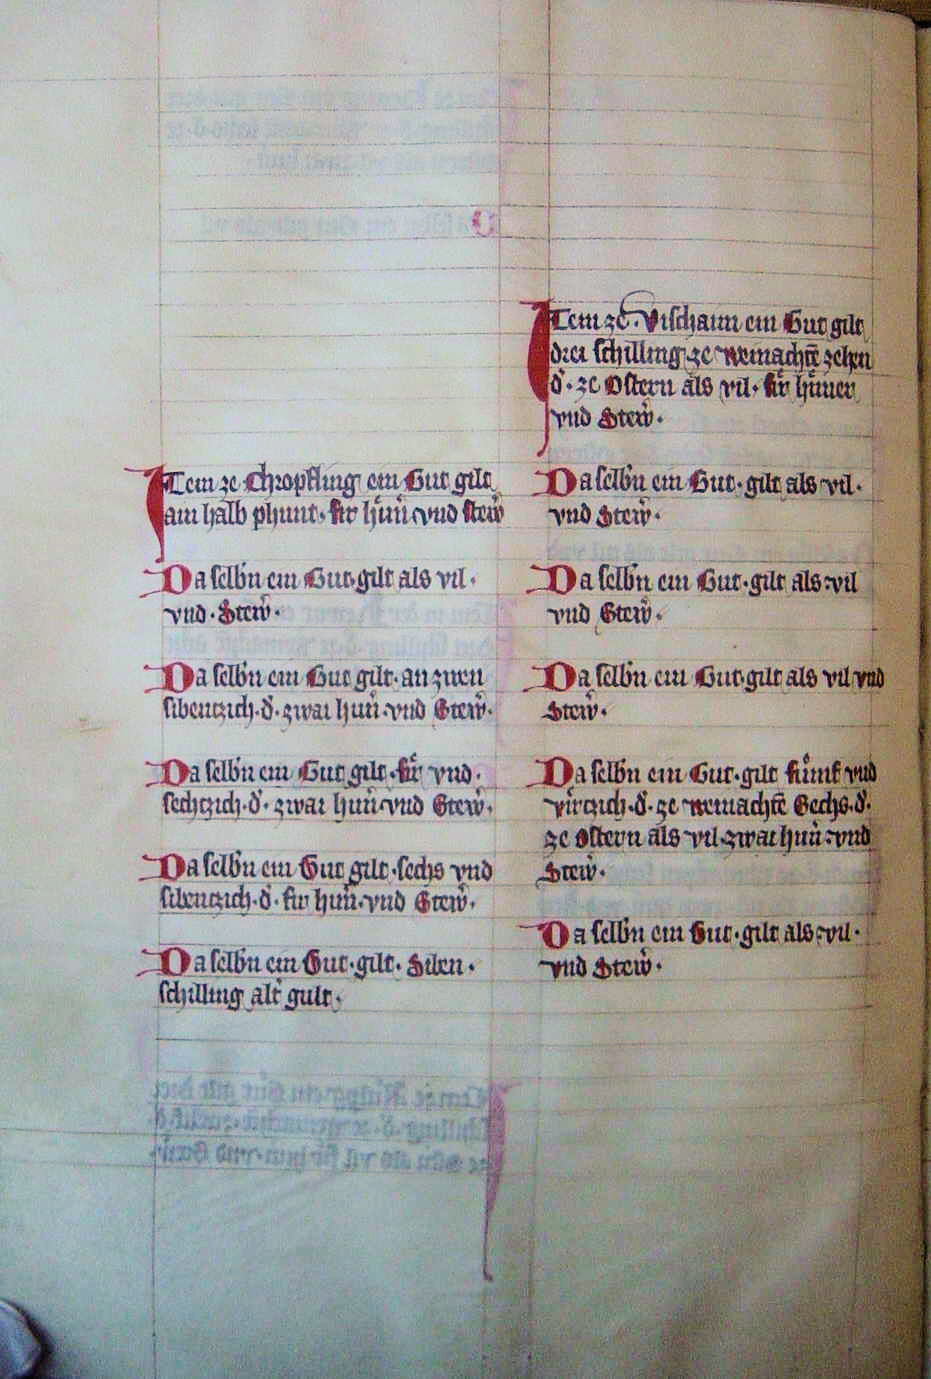 Item ze Chropfling ein Gut gilt
ain halb phunt· fir hůnˀ· vnd stewˀ
Da selbˀn ein Gut·gilt als vil·
vnd·Stewˀ·
Da selbˀn ein Gut gilt·an zwen
sibentzich·dˀ·zwai hunˀ·vnd Stewˀ·
Da selbˀn ein Gut gilt·fir vnd·
sechtzich·dˀ·zwai hunˀ·vnd Stewˀ·
Da selbˀn ein Gut gilt·sechs vnd
sibentzich·dˀ·fir hunˀ·vnd Stewˀ·
Da selbˀn ein Gut·gilt·Siben·
schilling altˀ gult·
Item ze·Vischarn ein Gut gilt
drei schilling·ze weinachtē zehen
dˀ·ze Ostern als vil·fir hůner
vnd Stewˀ·
Da selbˀn ein Gut·gilt als vil·
vnd Stewˀ·
Da selbˀn ein Gut·gilt als·vil
vnd Stewˀ·
Da selbˀn ein Gut·gilt als vil vnd
Stewˀ·
Da selbˀn ein Gut·gilt fůmf vnd
virtzich·dˀ·ze weinachtē Sechs·dˀ·
ze Ostern als vil·zwai hunˀ·vnd
Stewˀ·
Da selbˀn ein Gut·gilt als·vil·
vnd Stewˀ·